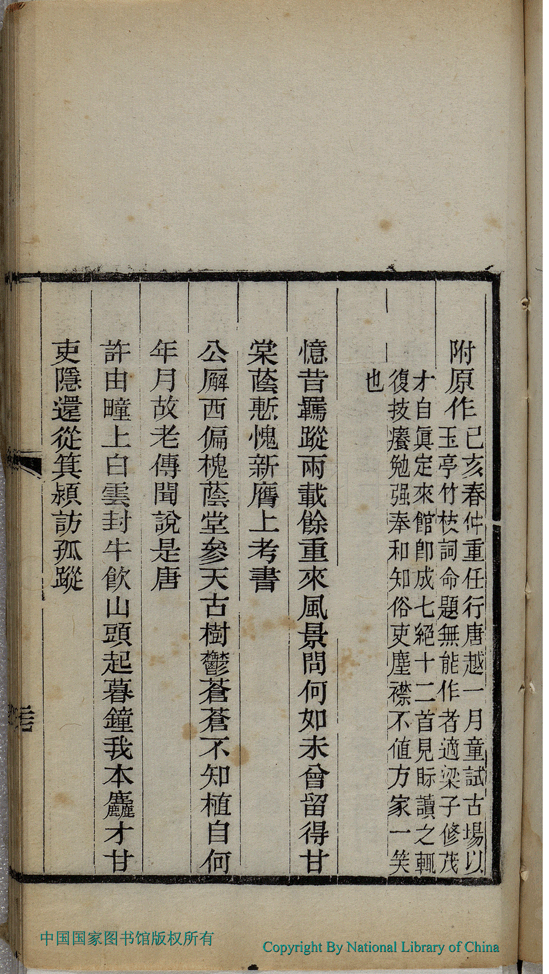 附原作己亥春仲重任行唐越一月童試古場以
玉亭竹枝詞命題無能作者適梁子修茂
才自眞定來館卽成七絕十二首見眎讀之輒
復技癢勉强奉和知俗吏塵襟不値方家一笑
也
憶昔羈蹤兩載餘重來風景問何如未曾留得甘
棠蔭慙愧新膺上考書
公廨西偏槐蔭堂參天古樹鬱蒼蒼不知植自何
年月故老傳聞說是唐
許由疃上白雲封牛飮山頭起暮鐘我本麤才甘
吏隱還從箕潁訪孤蹤
中国国家图书馆版权所有
Copyright By National Library of China